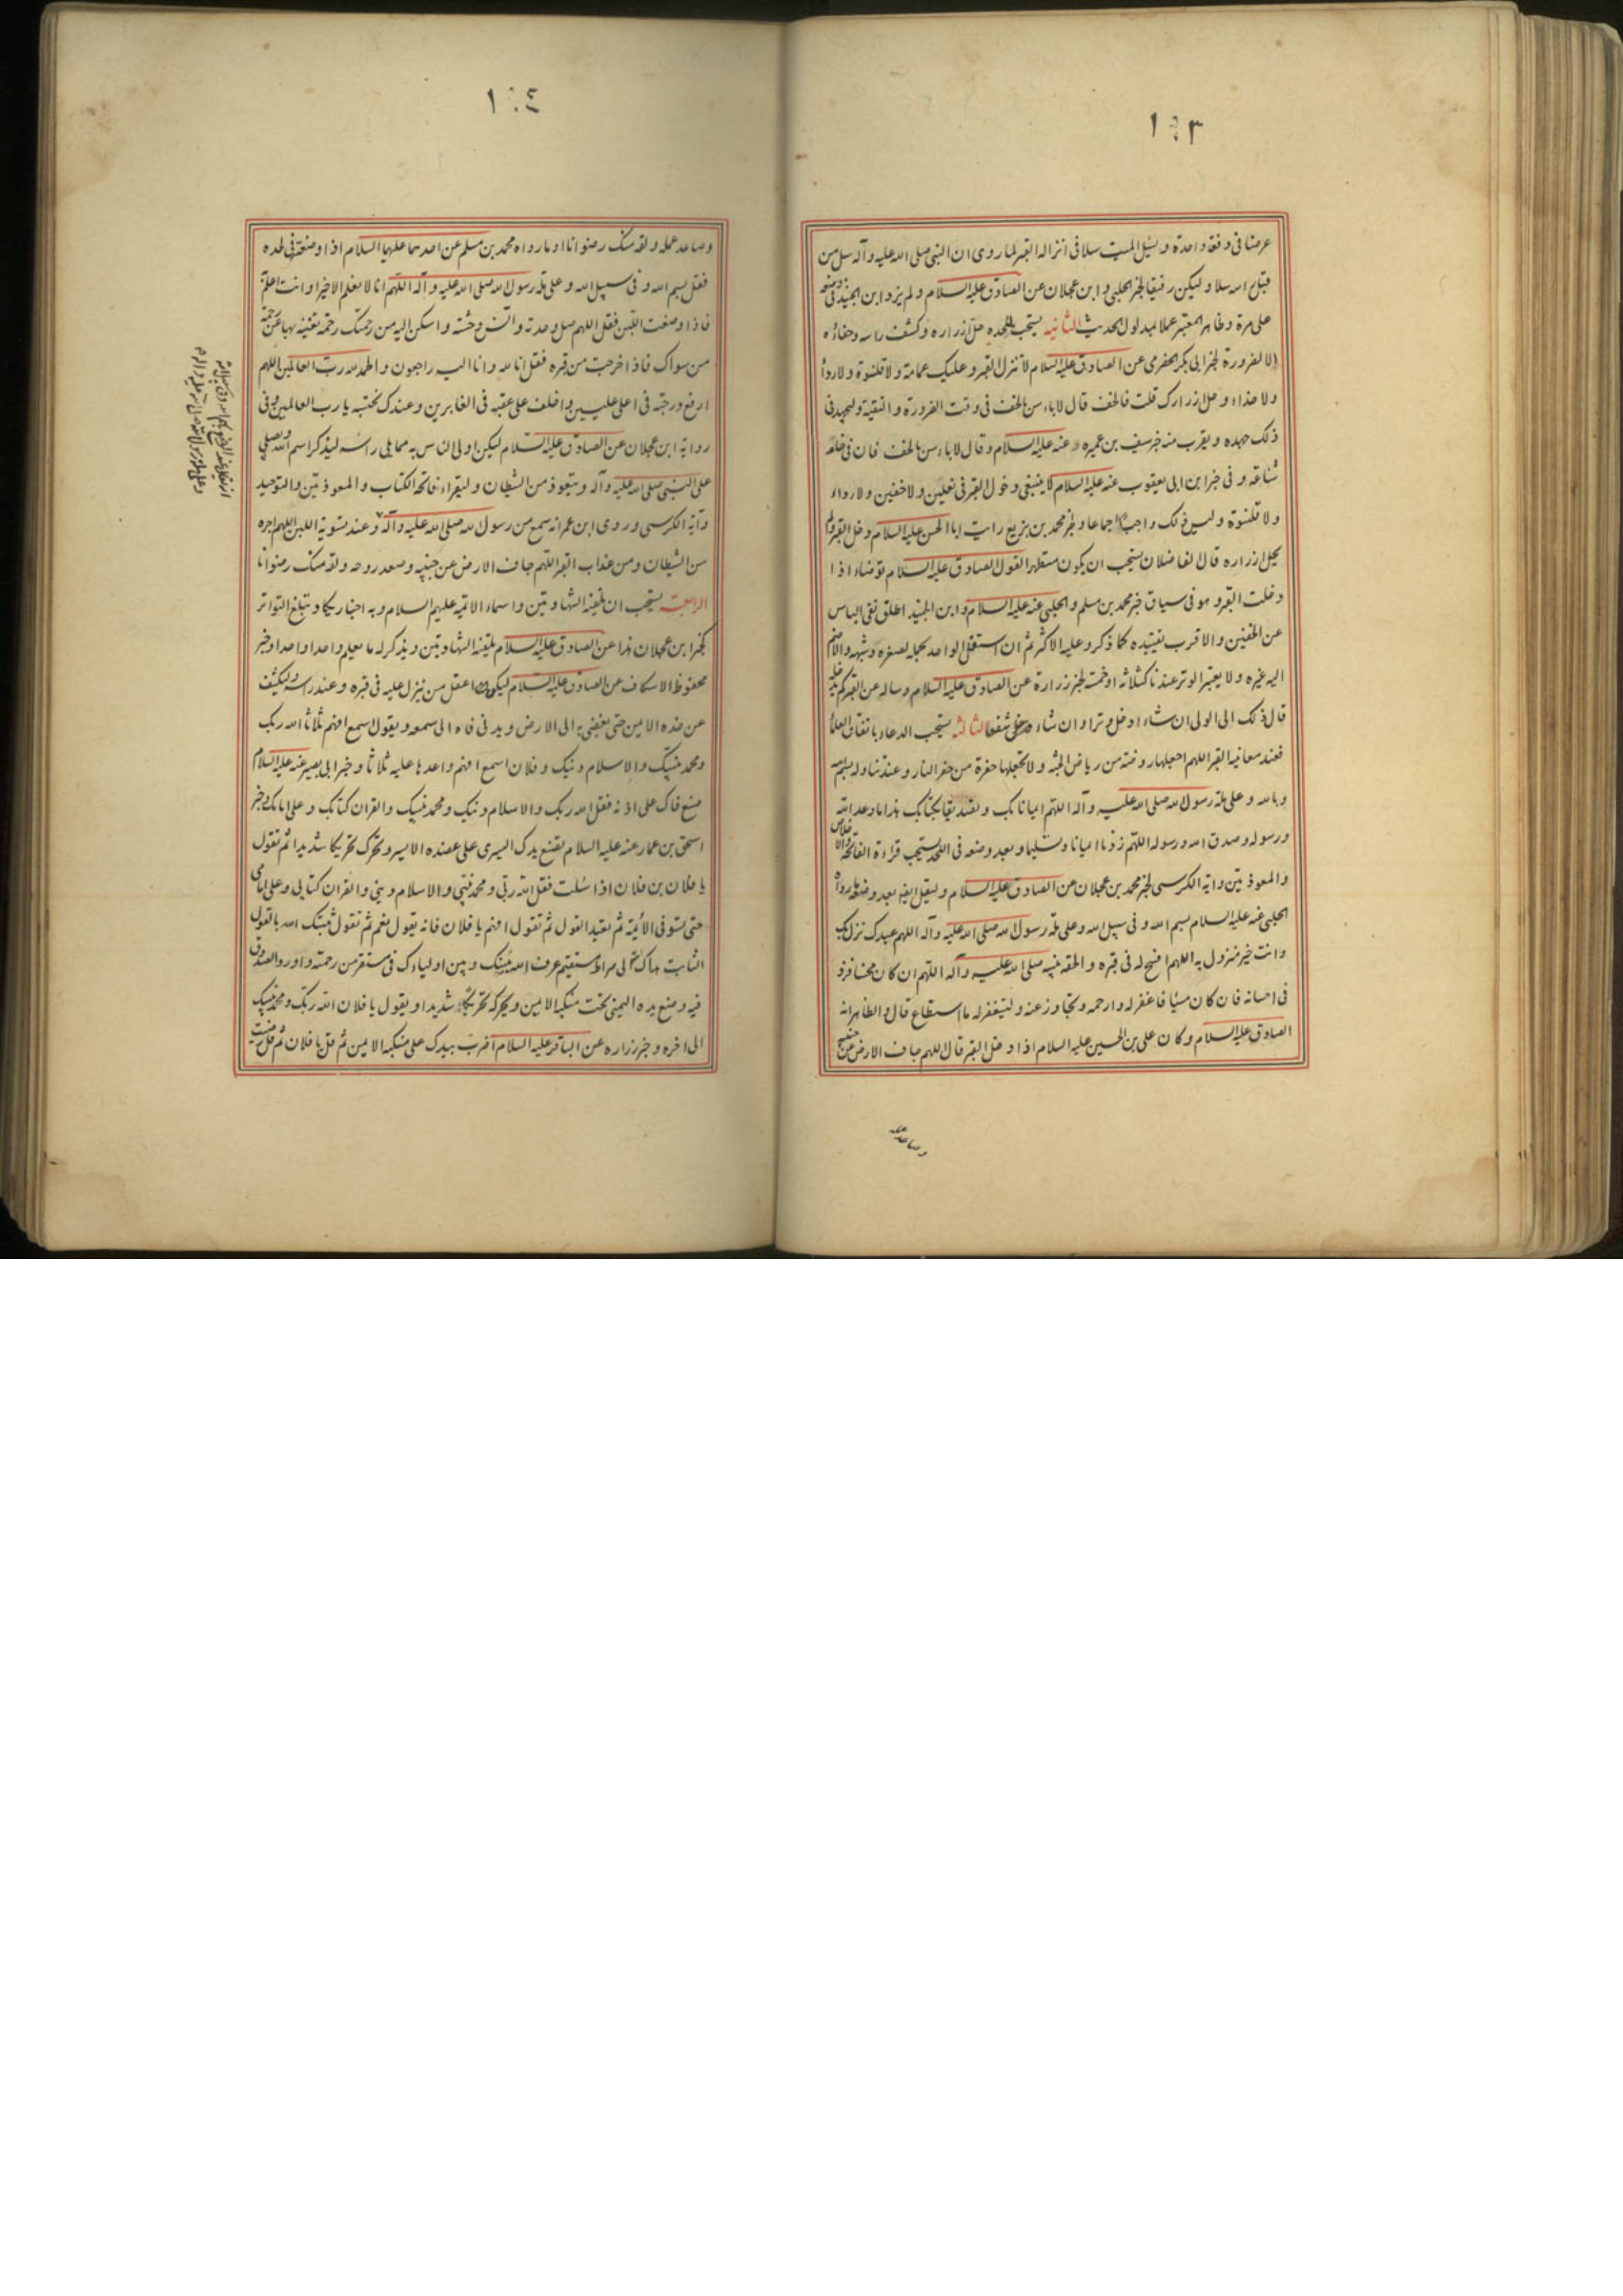 ١٠٣
عرضا فى دفعة واحدة و يسل الميت سلا فى انزاله القبر لما روى ان النبى صلى الله عليه و آله سل من
قبل راسه سلا و ليكن رفيقا لخبر الحلبى و ابن عجلان عن الصادق عليه السلام و لم يزد ابن الجنيد فى
على مرة و ظاهر المعتبر عملا بمدلول الحديث الثانيه يستحب لملحده حل ازراره و كشف راسه و حفاؤه
الا لضرورة لخبر ابى بكر الحضرمى عن الصادق عليه السلام لا تنزل القبر و عليك عمامة و لا قلنسوة و لا رداء
و لا حذاء و حل ازرارك قلت فالخف قال لا باس بالخف فى وقت الضرورة و التقية و ليجهد فى
ذلك جهده و يقرب منه خبر سيف بن عميره عنه عليه السلام و قال لا باس بالخف فان فى خلعه
شناعه و فى خبر ابن ابى يعفوب عنه عليه السلام لا ينبغى دخول القبر فى نعلين و لا خفين و لا رداء
و لا قلنسوة و ليس ذلك واجبا اجماعا و لخبر محمد بن بزيع رايت ابا الحسن عليه السلام دخل القبر و لم
يحل ازراره قال الفاضلان يستحب ان يكون متطهرا لقول الصادق عليه السلام توضاء اذا
دخلت القبر و هو فى سياق خبر محمد بن مسلم و الحلبى عنه عليه السلام و ابن الجنيد اطلق نفى الباس
عن الخفين و الاقرب تقييده كما ذكر و عليه الاكثر ثم ان استقل الواحد بحمله لصغره و شبهه و الا ضم
اليه غيره و لا يعتبر الوتر عندنا كثلاثه او خمسة لخبر زرارة عن الصادق عليه السلام و ساله عن القبر كم يدخله
قال ذلك الى الولى ان شاء ادخل وترا و ان شاء شفعا الثالثه يستحب الدعاء باتفاق العلماء
فعند معاينه القبر اللهم اجعلها روضة من رياض الجنه و لا تجعلها حفرة من حفر النار و عند تناوله بسم الله
و بالله و على ملة رسول الله صلى الله عليه و آله اللهم ايمانا بك و تصديقا بكتابك هذا ما وعد الله
و رسوله و صدق الله و رسوله اللهم زدنا ايمانا و تسليما و بعد وضعه فى اللحد يستحب قراءة الفاتحة و الاخلاص
و المعوذتين و اية الكرسى لخبر محمد بن عجلان عن الصادق عليه السلام و ليقل ايضا بعد وضعه ما رواه
الحلبى عنه عليه السلام بسم الله و فى سبيل الله و على ملة رسول الله صلى الله عليه و آله اللهم عبدك نزل بك
و انت خير منزول به اللهم افسح له فى قبره و الحقه بنبيه صلى الله عليه و آله اللهم ان كان محسنا فزد
فى احسانه فان كان مسيئا فاغفر له و ارحمه و تجاوز عنه و ليستغفر له ما استطاع قال و الظاهر انه
الصادق عليه السلام و كان على بن الحسين عليه السلام اذا دخل القبر قال اللهم جاف الارض عن جنبيه
و صاعد عمله
١٠٤
و صاعد عمله و لقه منك رضوانا او ما رواه محمد بن مسلم عن احدهما عليهما السلام اذا وضعته فى لحده
فقل بسم الله و فى سبيل الله و على ملة رسول الله صلى الله عليه و آله اللهم انا لا نعلم الا خيرا و انت اعلم به
فاذا وضعت اللبن فقل اللهم صل وحدته و انس وحشته و اسكن اليه من رحمتك رحمة تغنيه بها عن رحمة
من سواك فاذا خرجت من قبره فقل انا لله و انا اليه راجعون و الحمد لله رب العالمين اللهم
ارفع درجته فى اعلى عليين و اخلف على عقبه فى الغابرين و عندك نحتسبه يا رب العالمين و فى
رواية ابن عجلان عن الصادق عليه السلام ليكن اولى الناس به مما يلى راسه ليذكر اسم الله و يصلى
على النبى صلى الله عليه و آله و يتعوذ من الشيطان و ليقراء فاتحة الكتاب و المعوذتين و التوحيد
و آية الكرسى و روى ابن عمر انه سمع من رسول الله صلى الله عليه و آله عند تسوية اللبن اللهم اجره
من الشيطان و من عذاب القبر اللهم جاف الارض عن جنبيه و صعد روحه و لقه منك رضوانا
الرابعة يستحب ان يلقنه الشهادتين و اسماء الائمة عليهم السلام و به اخبار يكاد يبلغ التواتر
كخبر ابن عجلان هذا عن الصادق عليه السلام يلقنه الشهادتين و يذكر له ما يعلم واحدا واحدا و خبر
محفوظ الاسكاف عن الصادق عليه السلام ليكن اعقل من ينزل عليه فى قبره و عند راسه و ليكشف
عن خده الايمن حتى يفضى به الى الارض و يدنى فاه الى سمعه و يقول اسمع افهم ثلاثا الله ربك
و محمد نبيك و الاسلام دينك و فلان اسمع افهم و اعدها عليه ثلاثا و خبر ابى بصير عنه عليه السلام
ضع فاك على اذنه فقل الله ربك و الاسلام دينك و محمد نبيك و القران كتابك و على امامك و خبر
اسحق بن عمار عنه عليه السلام تضع يدك اليسرى على عضده الايسر و تحرك تحريكا شديدا ثم تقول
يا فلان بن فلان اذا سئلت فقل الله ربى و محمد نبيى و الاسلام دينى و القران كتابى و على امامى
حتى تستوفى الائمة ثم تعيد القول ثم تقول افهم يا فلان فانه يقول نعم ثم تقول ثبتك الله بالقول
الثابت هداك الله الى صراط مستقيم عرف الله بينك و بين اولياءك فى مستقر من رحمته و اورد الصدوق
فيه وضع يده اليمنى تحت منكبه الايمن و يحركه تحريكا شديدا و يقول يا فلان الله ربك و محمد نبيك
الى اخره و خبر زراره عن الباقر عليه السلام اضرب بيدك على منكبه الايمن ثم قل يا فلان ثم قل رضيت